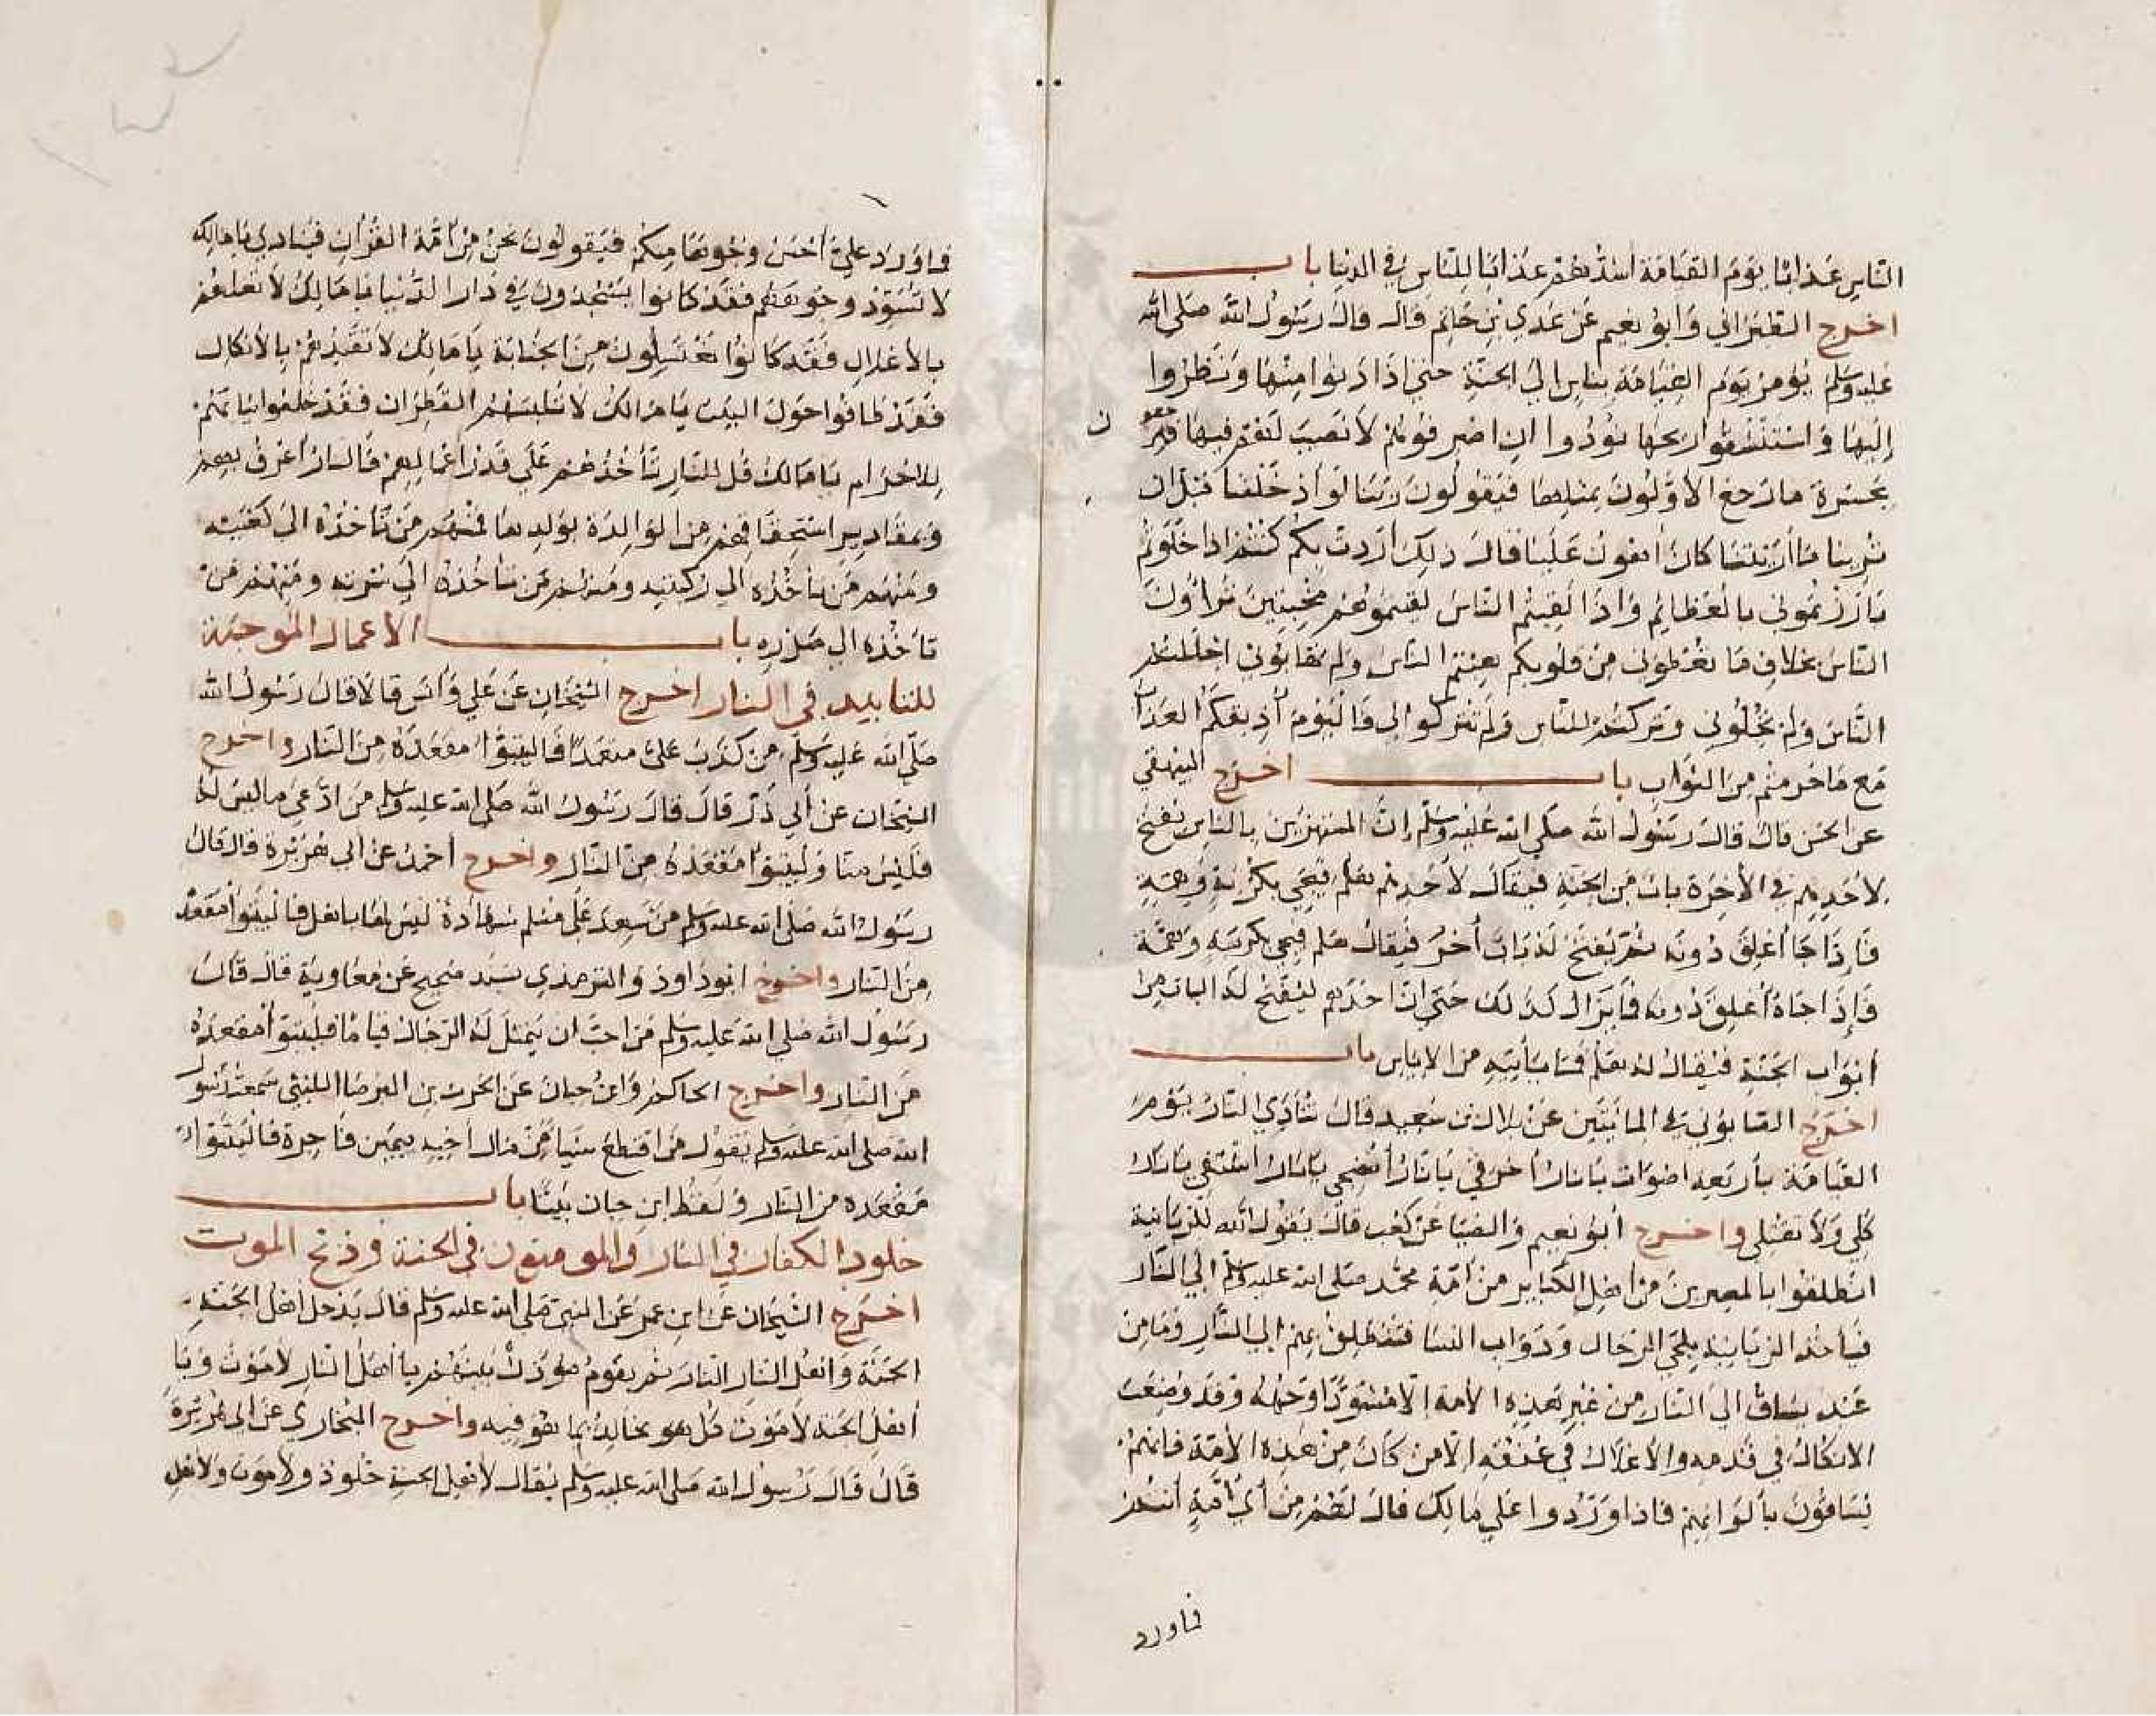 الناس عذابا يوم القيامة اشدهم عذابا للناس في الدنيا باب
اخرج الطبراني وابو نعيم عن عدي بن حاتم قال قال رسول الله صلى الله
عليه وسلم يؤمر يوم القيامة بناس الى الجنة حتى اذا دنوا منها ونظروا
اليها واستنشقوا ريحها نودوا ان اصرفوهم لا نصيب لهم فيها
بحسرة ما رجع الاولون بمثلها فيقولون ربنا لو ادخلتنا قبل ان
ترينا ما أريتنا كان أهون علينا قال ذلك أردت بكم كنتم اذا خلوتم
بارزتموني بالعظائم واذا لقيتم الناس لقيتموهم مخبتين تراؤون
الناس بخلاف ما تعطوني من قلوبكم هبتم الناس ولم تهابوني اجللتم
الناس ولم تجلوني وتركتم للناس ولم تتركوا لي فاليوم أذيقكم العذاب
مع ما حرمتم من الثواب باب اخرج البيهقي
عن الحسن قال قال رسول الله صلى الله عليه وسلم إن المستهزئين بالناس يفتح
لأحدهم في الأخرة باب من الجنة فيقال لأحدهم هلم فيجي بكربه وغمه
فإذا جا أغلق دونه ثم يفتح له باب أخر فيقال هلم فيجي بكربه وغمه
فإذا جاه أغلق دونه فما يزال كذلك حتى ان احدهم ليفتح له الباب من
أبواب الجنة فيقال له هلم فما يأتيه من الاياس باب
اخرج الصابوني في المائتين عن بلال بن سعيد قال تنادي النار يوم
القيامة بأربعه اصوات يا نار أحرقي يا نار أنضجي يا نار اشتفي يا نار
كلي ولا تقتلي واخرج أبو نعيم والضيا عن كعب قال يقول الله للزبانية
انطلقوا بالمصرين من أهل الكباير من أمة محمد صلى الله عليه وسلم الي النار
فيأخذ الزبانيه بلحي الرجال وذوايب النسا فتنطلق بهم الي النار وما من
عبد يساق الي النار من غير هذه الامه الا مسودا وجهه وقد وضعت
الانكال في قدمه والاغلال في عنقه الا من كان من هذه الامة فانهم
يساقون بألوانهم فاذا وردوا على مالك قال لهم من أي أمة أنتم
فما ورد
فما ورد علي أحسن وجوها منكم فيقولون نحن من أمة القرأن فينادي يا مالك
لا تسود وجوههم فقد كانوا يسجدون في دار الدنيا يا مالك لا تغلهم
بالأغلال فقد كانوا يغتسلون من الجنابة يا مالك لا تقيدهم بالأنكال
فقد طافوا حول البيت يا مالك لا تلبسهم القطران فقد خلعوا ثيابهم
للاحرام يا مالك قل للنار تأخذهم على قدر اعمالهم فالنار أعرف بهم
وبمقادير استحقاقهم من الوالدة بولدها فمنهم من تأخذه الى كعبيه
ومنهم من تأخذه الي ركبتيه ومنهم من تأخذه الي سرته ومنهم من
تأخذه الى صدره باب الأعمال الموجبة
للتابيد في النار اخرج الشيخان عن علي وأنس قالا قال رسول الله
صلى الله عليه وسلم من كذب علي متعمدا فاليتبوأ مقعده من النار واخرج
الشيخان عن أبي ذر قال قال رسول الله صلى الله عليه وسلم من ادعى ما ليس له
فليس منا وليتبوأ مقعده من النار واخرج أحمد عن أبي هريرة قال قال
رسول الله صلى الله عليه وسلم من شهد على مسلم شهادة ليس لها باهل فاليتبوأ مقعده
من النار واخرج ابو داود والترمذي بسند صحيح عن معاوية قال قال
رسول الله صلى الله عليه وسلم من احب ان يتمثل له الرجال قياما فليتبوأ مقعده
من النار واخرج الحاكم وابن حبان عن الحرث بن البرصا الليثي سمعت رسول
الله صلى الله عليه وسلم يقول من اقتطع شيأ من مال أخيه بيمين فاجرة فاليتبوأ
مقعده من النار ولفظ ابن حبان بيتا باب
خلود الكفار في النار والمومنون في الجنة وذبح الموت
اخرج الشيخان عن ابن عمر عن النبي صلى الله عليه وسلم قال يدخل أهل الجنة
الجنة وأهل النار النار ثم يقوم مؤذن بينهم يا أهل النار لا موت ويا
أهل الجنه لا موت كل هو خالد بما هو فيه واخرج البخاري عن ابي هريرة
قال قال رسول الله صلى الله عليه وسلم يقال لأهل الجنة خلود ولا موت ولأهل